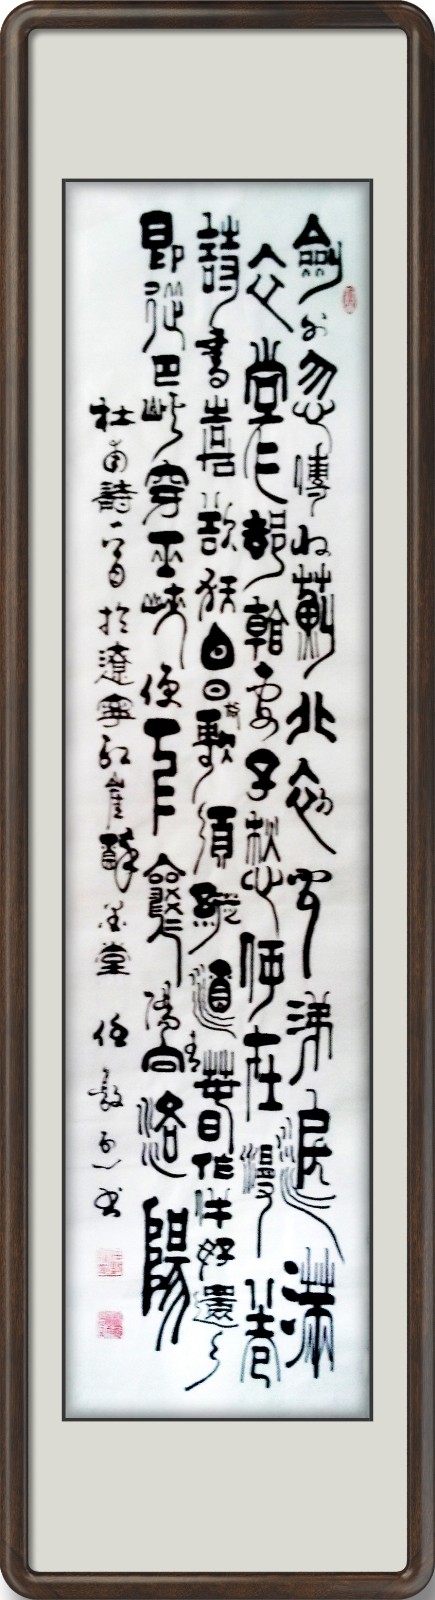 劍外忽傳收薊北初聞涕淚滿
衣裳却看妻子愁何在漫卷
詩書喜欲狂白日放歌須縱酒青春作伴好還乡
即從巴峽穿巫峽便下襄陽向洛陽
杜甫詩一首於遼寧紅崖醉墨堂 任书